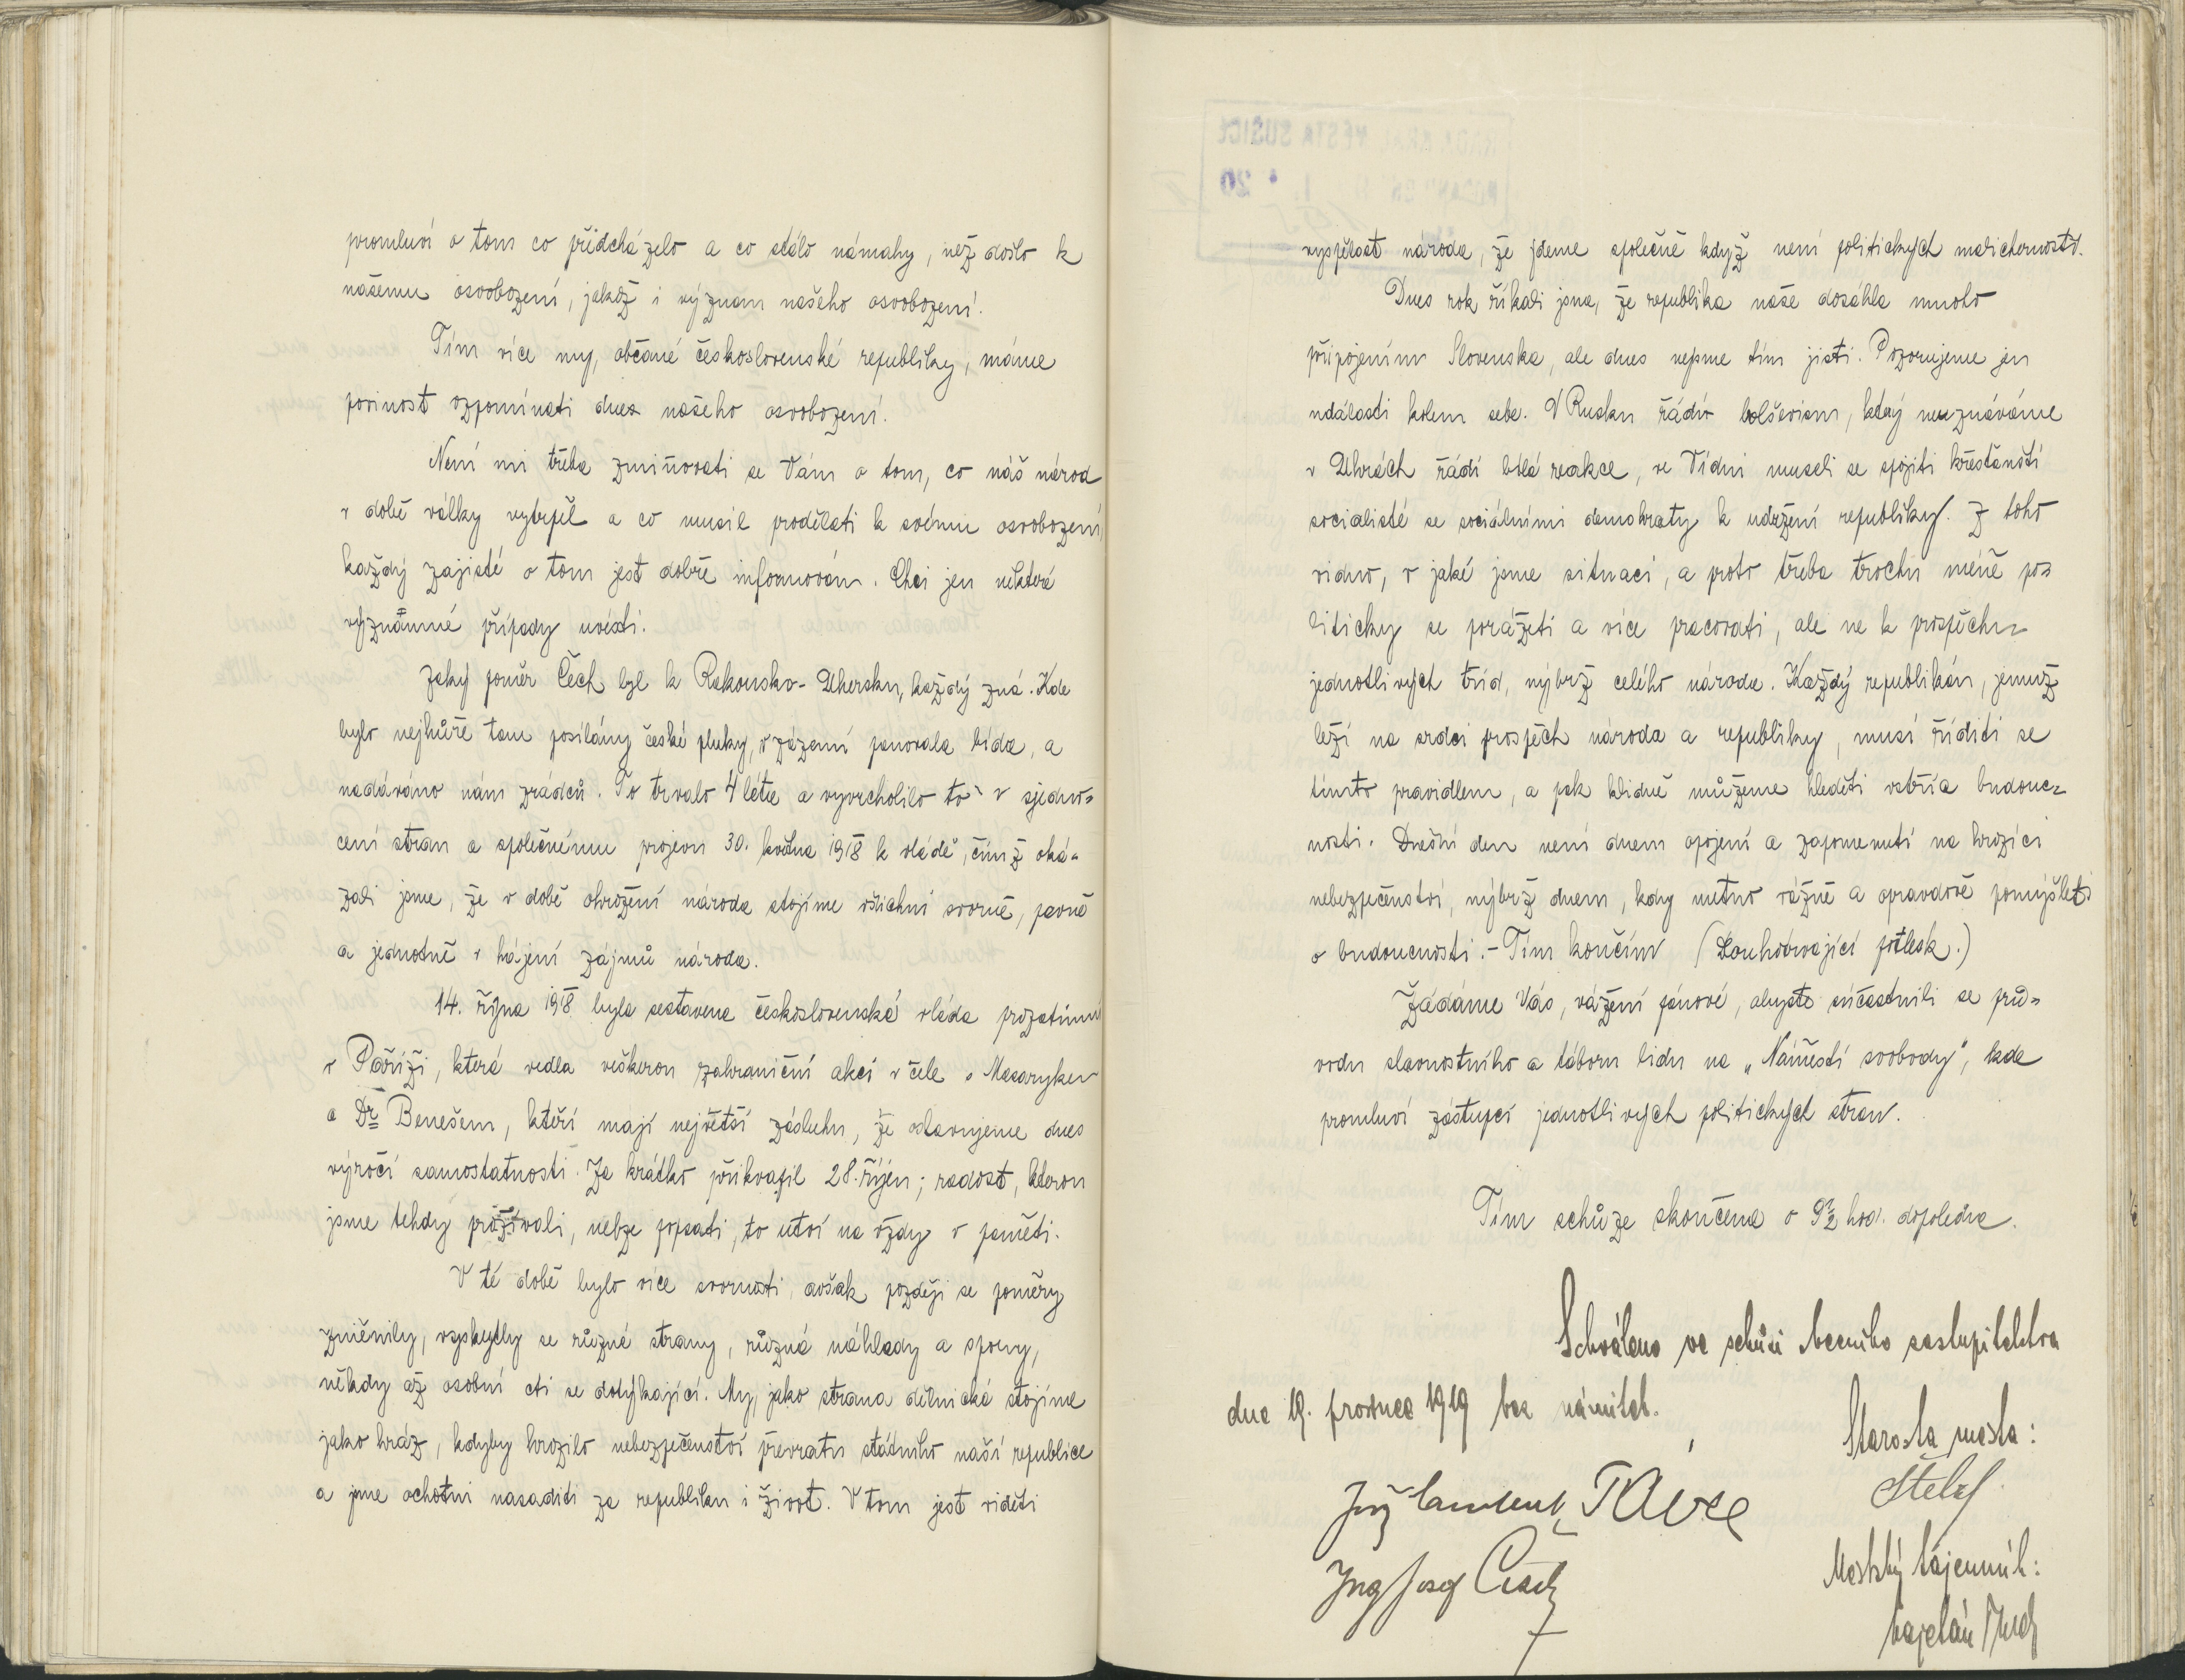 promluví o tom co předcházelo a co stálo námahy, než došlo k
našemu osvobození, jakož i význam našeho osvobození.
Tím více my, občané československé republiky, máme
povinost vzpomínati dnes našeho osvobození.
Není mi třeba zmiňovati se Vám o tom, co náš národ
v době války vytrpěl a co musil prodělati k svému osvobození,
každý zajisté o tom jest dobře informován. Chci jen některé
význačné případy uvésti.
Jaký poměr Čech byl k Rakousko-Uhersku, každý zná. Kde
bylo nejhůře tam posílány české pluky, v zázemí panovala bída, a
nadáváno nám zrádců. To trvalo 4 léta a vyvrcholilo to v sjedno=
cení stran a společnému projevu 30. května 1918 k vládě, čímž oká=
zali jsme, že v době ohrožení národa stojíme všichni svorně, pevně
a jednotně v hájení zájmů národa.
14. října 1918 byla sestavena československá vláda prozatimní
v Paříži, která vedla veškerou zahraniční akci v čele s Masarykem
a Dr Benešem, kteří mají největší zásluhu, že oslavujeme dnes
výročí samostatnosti. Za krátko přikvapil 28. říjen; radost, kterou
jsme tehdy prožívali, nelze popsati, to utkví na vždy v paměti.
V té době bylo více svornosti, avšak později se poměry
změnily, vyskytly se různé strany, různá náhledy a spory,
někdy až osobní cti se dotýkající. My, jako strana dělnická stojíme
jako hráz, kdyby hrozilo nebezpečenství převratu státního naší republice
a jsme ochotni nasaditi za republiku i život. V tom jest viděti
vyspělost národa, že jdeme společně když není politických malicherností.
Dnes rok říkali jsme, že republika naše dosáhla mnoho
připojením Slovenska, ale dnes nejsme tím jisti. Pozorujeme jen
události kolem sebe. V Rusku řádí bolševism, který neuznáváme
v Uhrách řádí bílá reakce, ve Vídni museli se spojiti křesťanští
socialisté se sociálními demokraty k udržení republiky. Z toho
vidno, v jaké jsme situaci, a proto třeba trochu méně po=
liticky se porážeti a více pracovati, ale ne k prospěchu
jednotlivých tříd, nýbrž celého národa. Každý republikán, jemuž
leží na srdci prospěch národa a republiky, musí říditi se
tímto pravidlem, a pak klidně můžeme hleděti vstříc budouc=
nosti. Dnešní den není dnem opojení a zapomenutí na hrozící
nebezpečenství, nýbrž dnem, kdy nutno vážně a opravdově pomýšleti
o budoucnosti. – Tím končím (Dlouhotrvající potlesk.)
Žádáme Vás, vážení pánové, abyste súčastnili se prů=
vodu slavnostního a táboru lidu na „Náměstí svobody", kde
promluví zástupci jednotlivých politických stran.
Tím schůze skončena o 9½ hod. dopoledne.
Schváleno ve schůzi obecního zastupitelstva
dne 19. prosince 1919 bez námitek.
Starosta města:
Ing Josef
Městský tajemník: